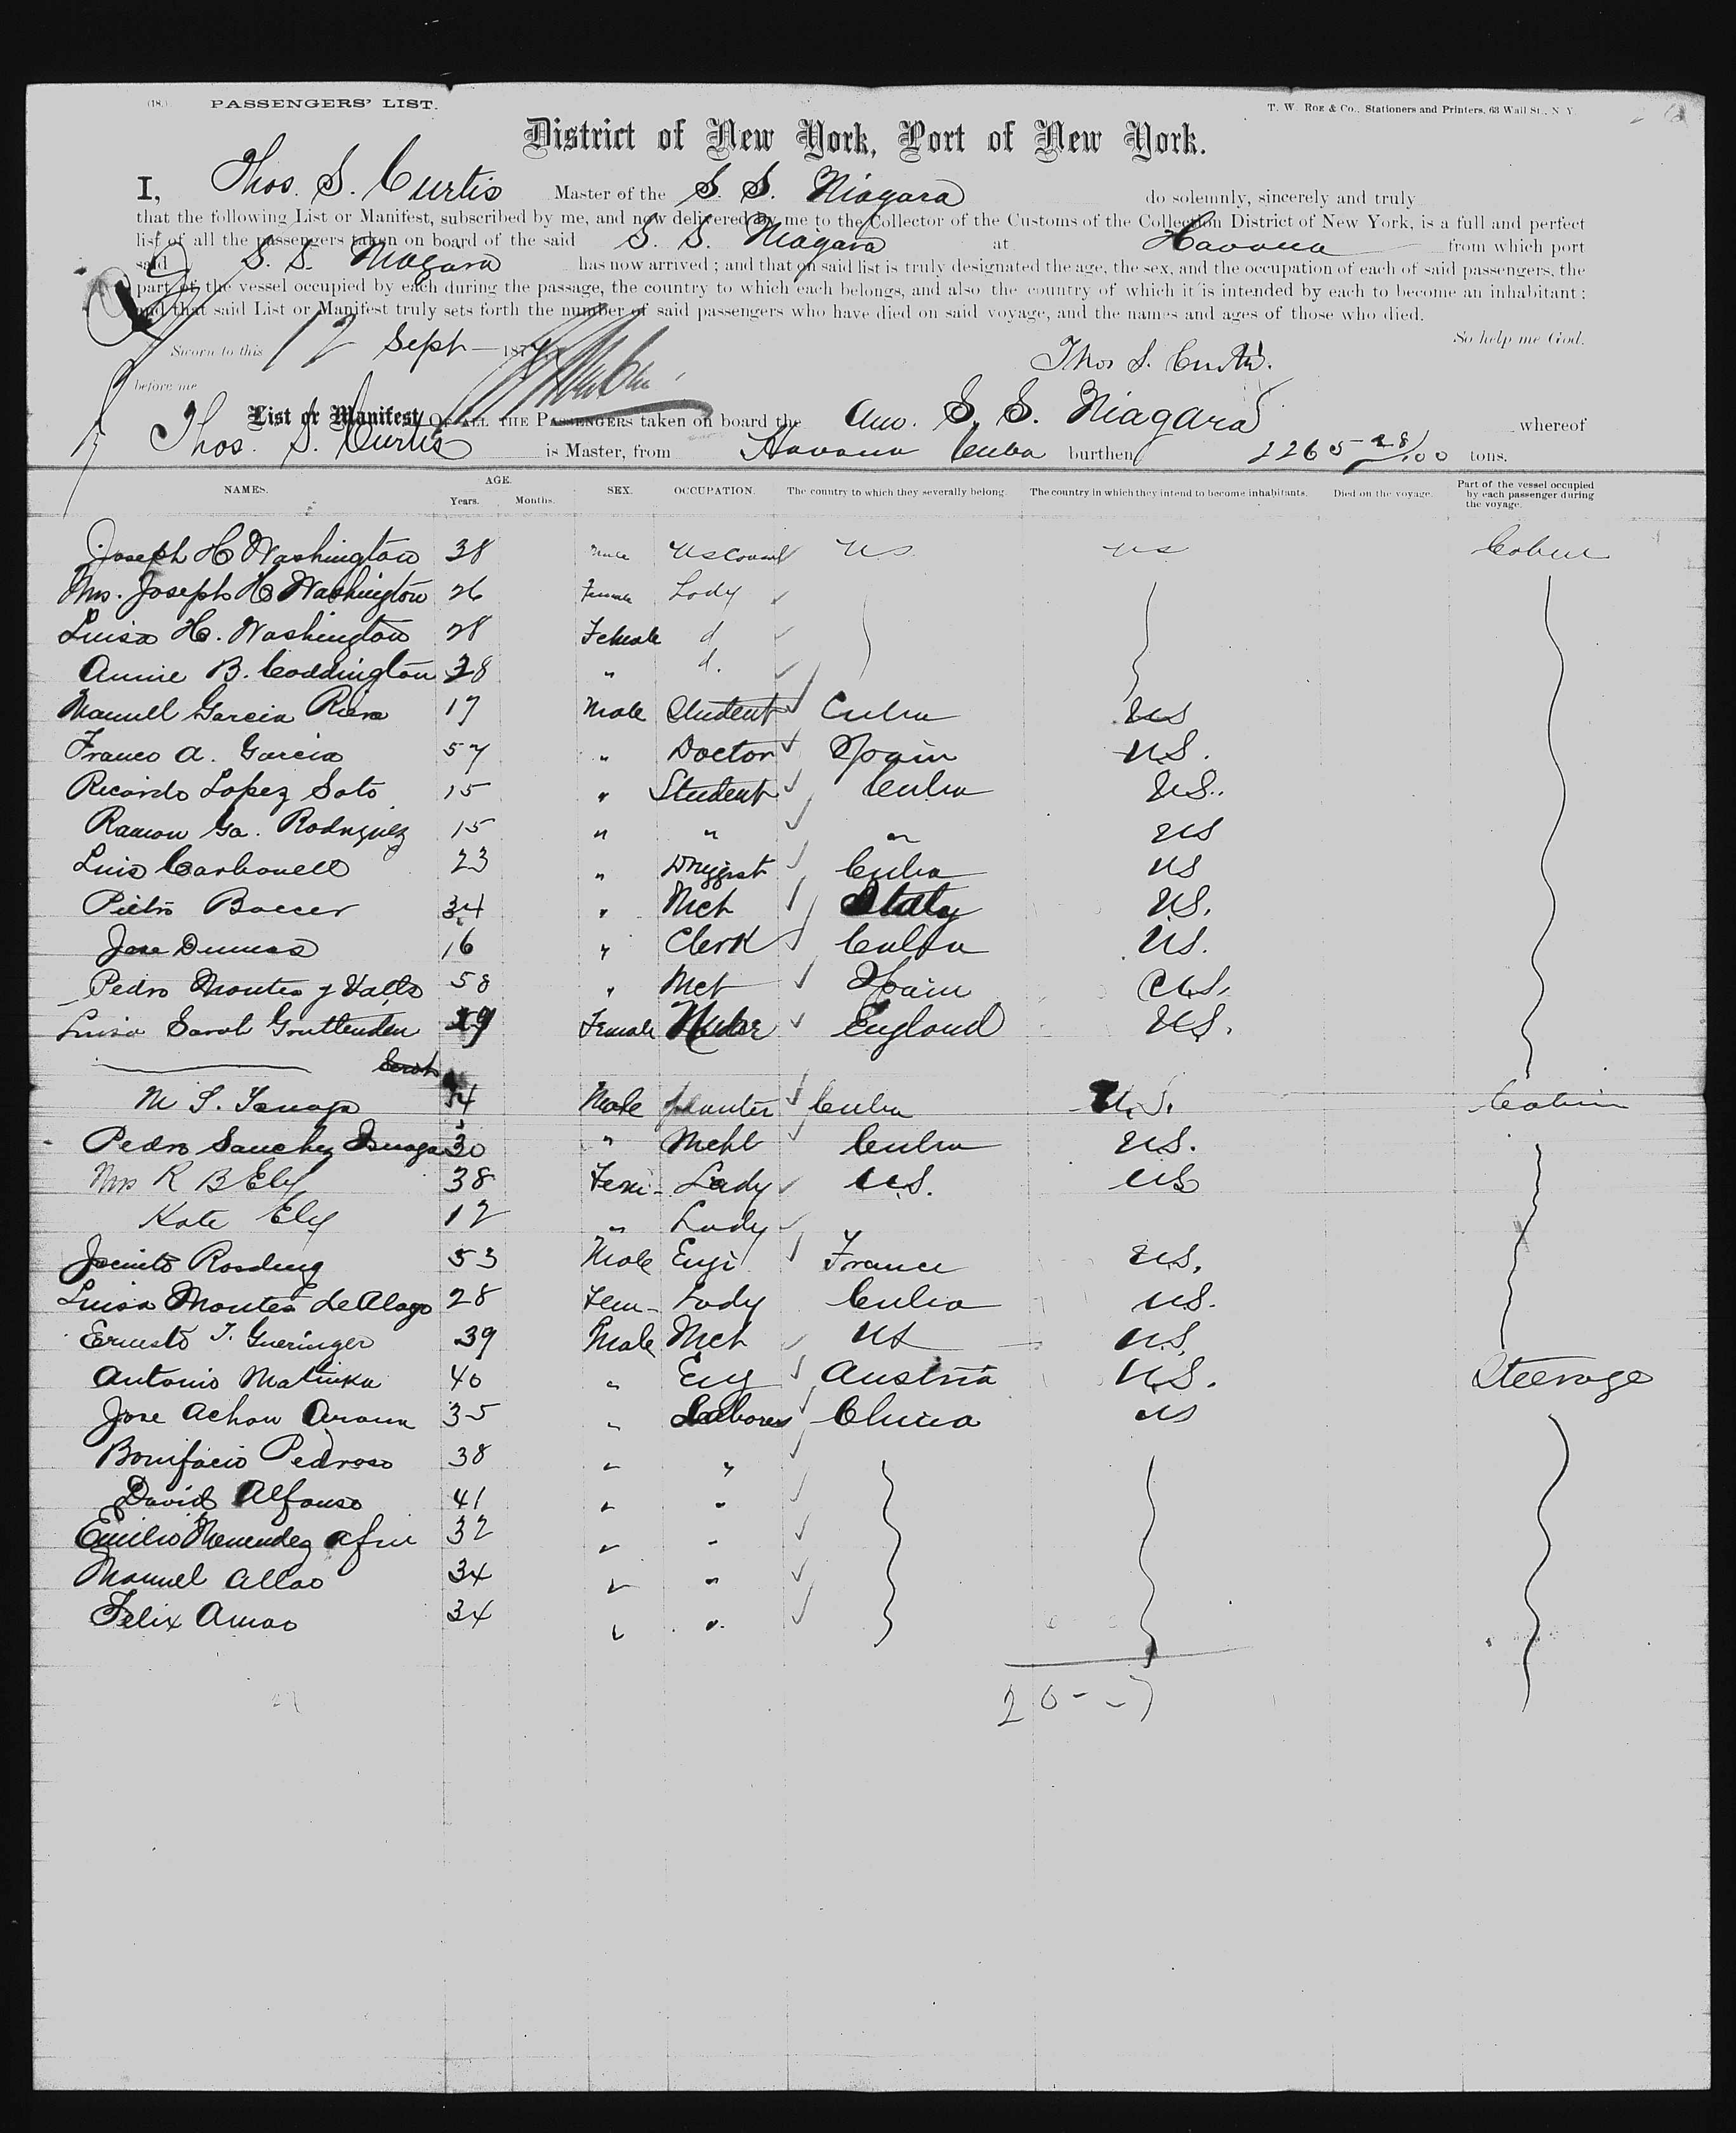 (18.) PASSENGERS' LIST. T. W. ROE & Co., Stationers and Printers, 63 Wall St., N. Y.
District of New York, Port of New York.
I, Thos. S. Curtis Master of the S. S. Niagara do solemnly, sincerely and truly
that the following List or Manifest, subscribed by me, and now delivered by me to the Collector of the Customs of the Collection District of New York, is a full and perfect
list of all the passengers taken on board of the said S. S. Niagara at Havana from which port
said S. S. Niagara has now arrived; and that on said list is truly designated the age, the sex, and the occupation of each of said passengers, the
part of the vessel occupied by each during the passage, the country to which each belongs, and also the country of which it is intended by each to become an inhabitant;
and that said List or Manifest truly sets forth the number of said passengers who have died on said voyage, and the names and ages of those who died.
So help me God.
Sworn to this 12 Sept 187
Thos S. Curtis.
before me
List or Manifest OF ALL THE PASSENGERS taken on board the Am. S. S. Niagara whereof
Thos. S. Curtis is Master, from Havana Cuba burthen 2265 28/100 tons.
NAMES. AGE. Years. Months. SEX. OCCUPATION. The country to which they severally belong. The country in which they intend to become inhabitants. Died on the voyage. Part of the vessel occupied by each passenger during the voyage.
Joseph H Washington 38 Male US Consul US US Cabin
Mrs. Joseph H Washington 26 Female Lady
Luisa H. Washington 28 Female d
Annie B. Coddington 28 " d.
Manuell Garcia 17 Male Student Cuba US
Franco A. Garcia 57 " Doctor Spain U.S.
Ricardo Lopez Soto 15 " Student Cuba U.S.
Ramon Ga. Rodriguez 15 " " " US
Luis Carbonell 23 " Druggist Cuba US
Pietro 34 " Mct Italy U.S.
Jose Dumas 16 " Clerk Cuba U.S.
Pedro Montes y Valls 58 " Mct Spain U.S.
Luisa Sarah Female England U.S.
M S. 34 Male planter Cuba U.S. Cabin
Pedro Sanchez 30 " Mcht Cuba U.S.
Mrs R B Ely 38 Fem- Lady U.S. US
Kate Ely 12 " Lady
Jacinto 53 Male Engi France U.S.
Luisa Montes de Alago 28 Fem- Lady Cuba U.S.
Ernesto T. Gueringer 39 Male Mct US U.S.
Antonio Matinka 40 " Eng Austria U.S. Steerage
Jose Achon 35 " Laborer China US
Bonifacio Pedroso 38 " "
David Alfonso 41 " "
Emilio Menendez 32 " "
Manuel Allao 34 " "
Felix Amao 34 " "
20 - - 7